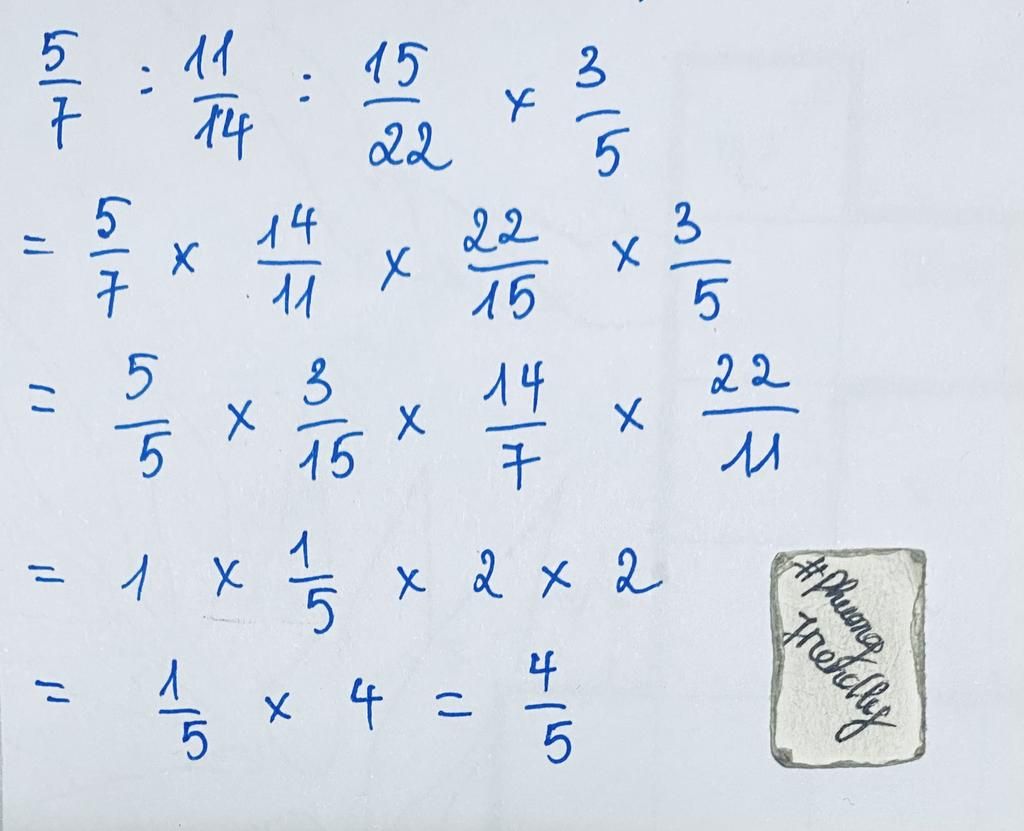 5/7 : 11/14 : 15/22 × 3/5
= 5/7 × 14/11 × 22/15 × 3/5
= 5/5 × 3/15 × 14/7 × 22/11
= 1 × 1/5 × 2 × 2
= 1/5 × 4 = 4/5
#Phuong
Trendly